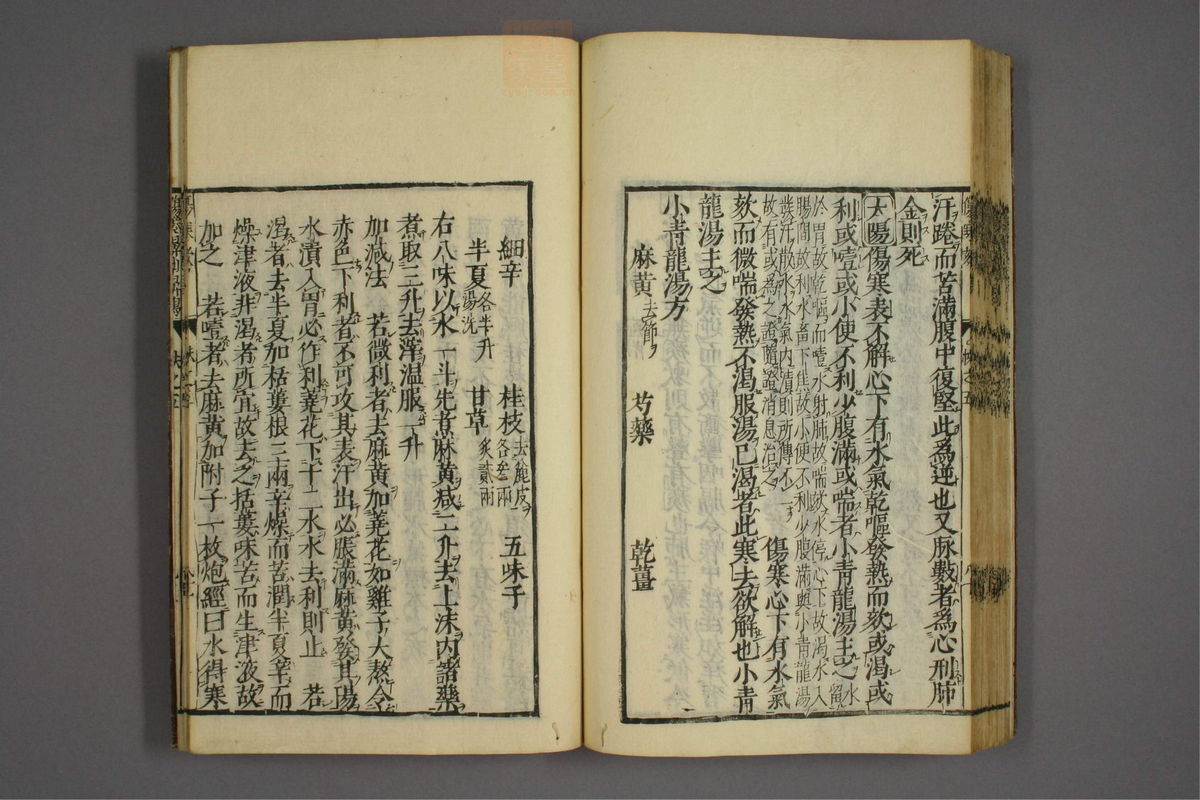 汗踡而苦滿腹中復堅此爲逆也又脉數者爲心刑肺
金則死
太陽傷寒表不解心下有水氣乾嘔發熱而欬或渴或
利或噎或小便不利少腹滿或喘者小青龍湯主之 水留
於胃故乾嘔而噎水射肺故喘欬水停心下故渴水入
腸間故利水畜下焦故小便不利少腹滿與小青龍湯
發汗散水水氣内漬則所傳不一
故有或爲之證隨證消息治之 傷寒心下有水氣
欬而微喘發熱不渴服湯已渴者此寒去欲解也小青
龍湯主之
小青龍湯方
麻黃去節 芍藥 乾薑
細辛 桂枝去麄皮各叁兩 五味子
半夏湯洗各半升 甘草炙貳兩
右八味以水一斗先煮麻黃減二升去上沫内諸藥
煮取三升去滓温服一升
加減法 若微利者去麻黃加蕘花如雞子大熬令
赤色下利者不可攻其表汗出必脹滿麻黃發其陽
水漬入胃必作利蕘花下十二水水去利則止 若
渴者去半夏加栝蔞根三兩辛燥而苦潤半夏辛而
燥津液非渴者所宜故去之括蔞味苦而生津液故
加之 若噎者去麻黃加附子一枚炮經曰水得寒